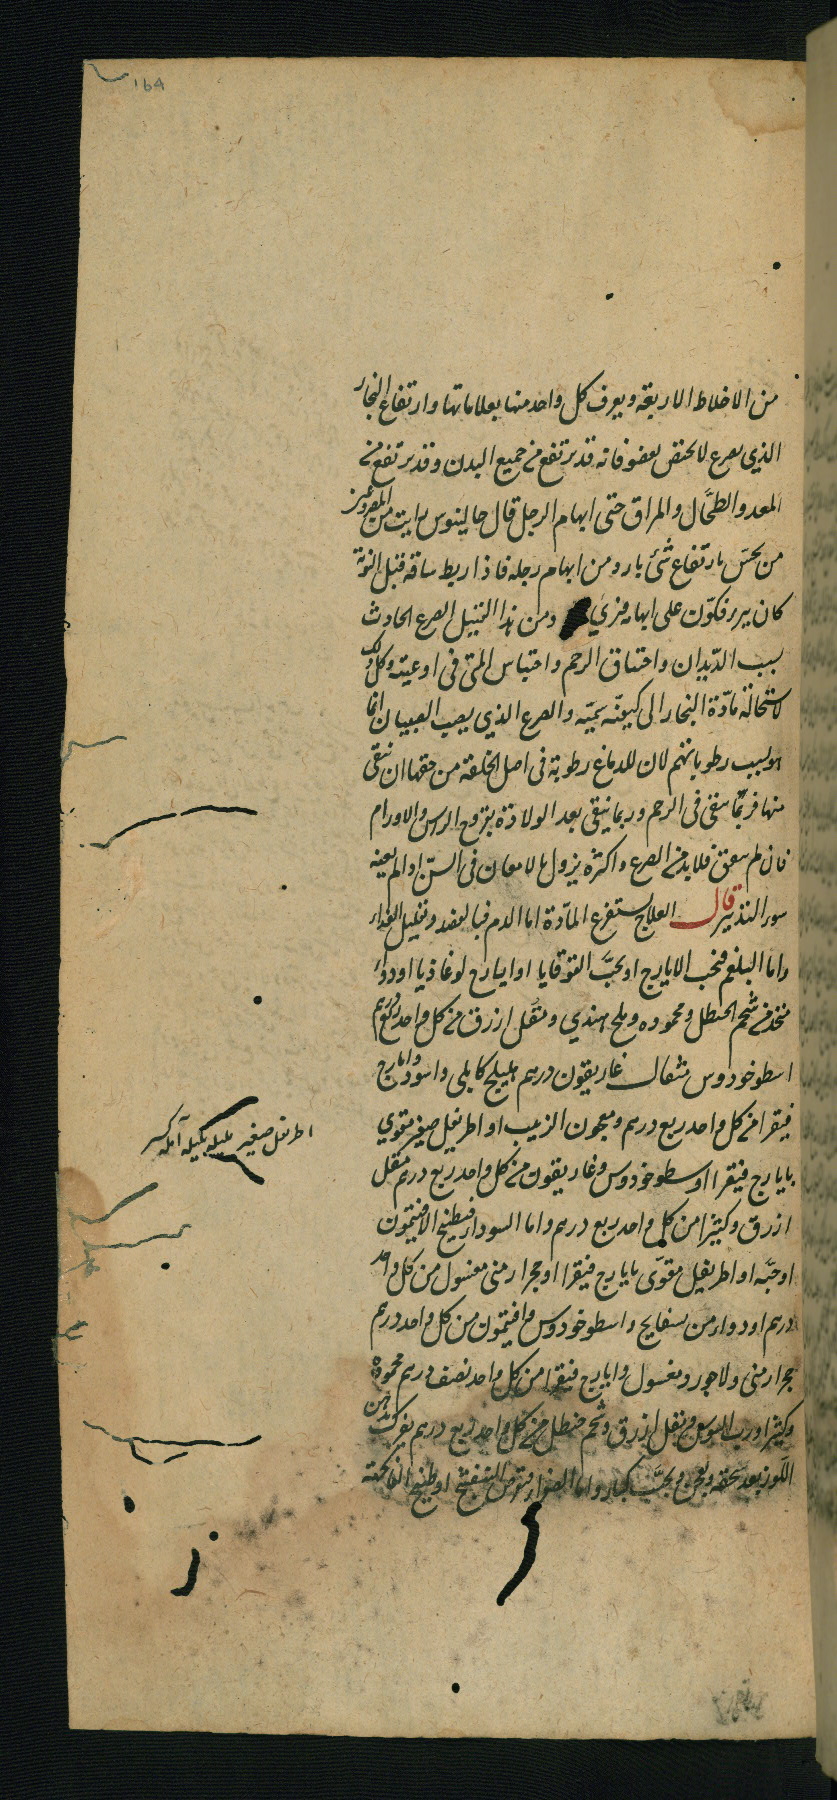 ١٦٨
من الاخلاط الاربعة ويعرف كل واحد منها بعلاماتها وارتفاع البخار
الذي يصرع لا يختص بعضو فانه قد يرتفع من جميع البدن وقد يرتفع من
المعد والطحال والمراق حتى ابهام الرجل قال جالينوس رايت من المصروعين
من يحس بارتفاع شئ بارد من ابهام رجله فاذا ربط ساقه قبل النوبة
كان يبرء فكون على ابهامه ومن هذا القبيل الصرع الحادث
بسبب الديدان واختناق الرحم واحتباس المنى فى اوعيته وكل ذلك
لاستحالة مادة البخار الى كيفية سمية والصرع الذي يصيب الصبيان انما
هو بسبب رطوباتهم لان للدماغ رطوبة فى اصل الخلقة من حقها ان تنقى
منها فربما تنقى فى الرحم وربما ينقى بعد الولادة بقروح الراس والاورام
فان لم يتفق فلا بد من الصرع واكثره يزول بالامعان فى السن اذا لم يعنه
سوء التدبير قال العلاج يستفرغ المادة اما الدم فبالفصد وتقليل الغذاء
واما البلغم فبحب الايارج او بحب القوقايا او ايارج لوغاذيا او دواء
متخذ من شحم الحنطل ومحموده وملح هندي ومقل ازرق من كل واحد ربع درهم
اسطوخودوس مثقال غاريقون درهم هليلج كابلى واسود وايارج
فيقرا من كل واحد ربع درهم ومعجون الزبيب او اطريفل صغير مقوي
بايارج فيقرا او اسطوخودوس وغاريقون من كل واحد ربع درهم مقل
ازرق وكثيرا من كل واحد ربع درهم واما السوداء فبطبيخ الافتيمون
او حبه او اطريفل مقوى بايارج فيقرا او حجر ارمنى مغسول من كل واحد
درهم او دواء من بسفايج واسطوخودوس وافتيمون من كل واحد درهم
حجر ارمنى ولاجورد مغسول وايارج فيقرا من كل واحد نصف درهم محموده
وكثيرا ورب السوس ومقل ازرق وشحم حنطل من كل واحد ربع درهم يفرك بدهن
اللوز بعد سحقه ويعجن ويحبب كبار واما الصفراء فبقرص البنفسج او طبيخ الفاكهة
اطريفل صغير هليله بليله آمله